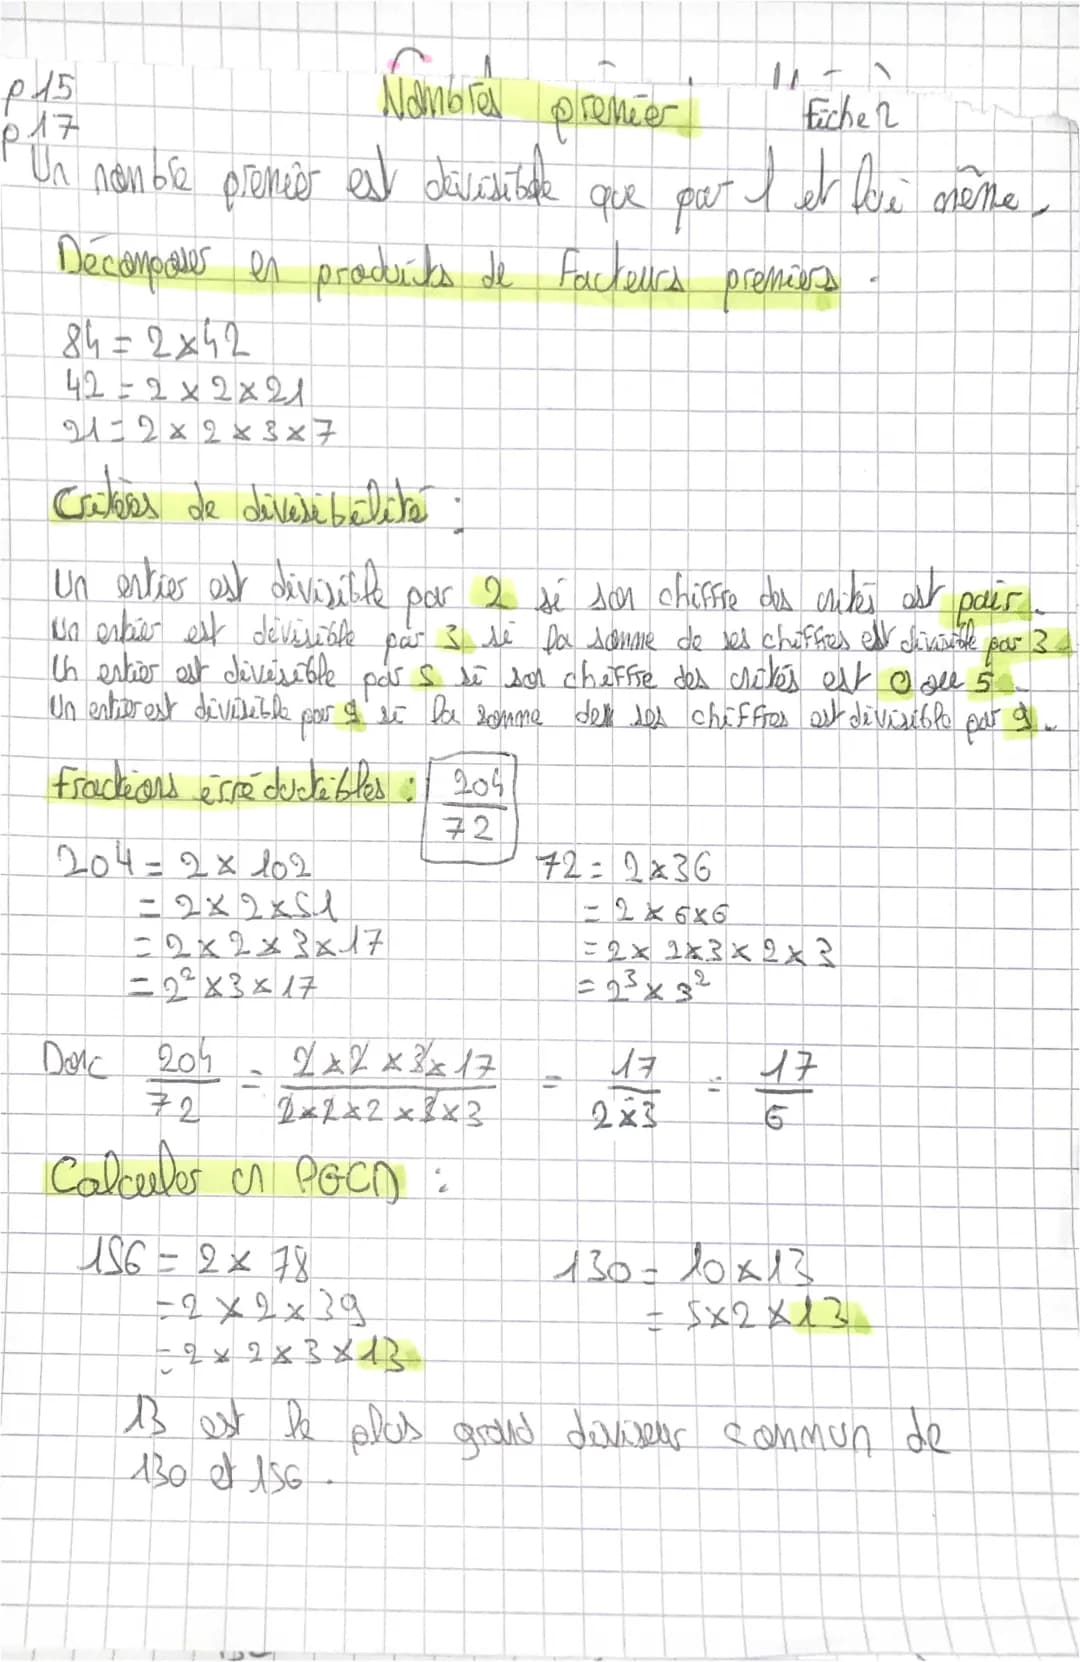 p 15
p 17
Nombres premier
Fiche 2
Un nombre premier est divisible que par 1 et lui même.
Décomposer en produits de facteurs premiers.
84 = 2 x 42
42 = 2 x 2 x 21
21 = 2 x 2 x 3 x 7
Critères de divisibilité :
Un entier est divisible par 2 si son chiffre des unités est pair.
Un entier est divisible par 3 si la somme de ses chiffres est divisible par 3
Un entier est divisible par 5 si son chiffre des unités est 0 ou 5.
Un entier est divisible par 9 si la somme de ses chiffres est divisible par 9.
Fractions irréductibles : 204/72
204 = 2 x 102
= 2 x 2 x 51
= 2 x 2 x 3 x 17
= 2² x 3 x 17
72 = 2 x 36
= 2 x 6 x 6
= 2 x 2 x 3 x 2 x 3
= 2³ x 3²
Donc 204/72 = 2 x 2 x 3 x 17 / 2 x 2 x 2 x 3 x 3 = 17 / 2 x 3 = 17/6
Calculer un PGCD :
156 = 2 x 78
= 2 x 2 x 39
= 2 x 2 x 3 x 13
130 = 10 x 13
= 5 x 2 x 13
13 est le plus grand diviseur commun de
130 et 156.